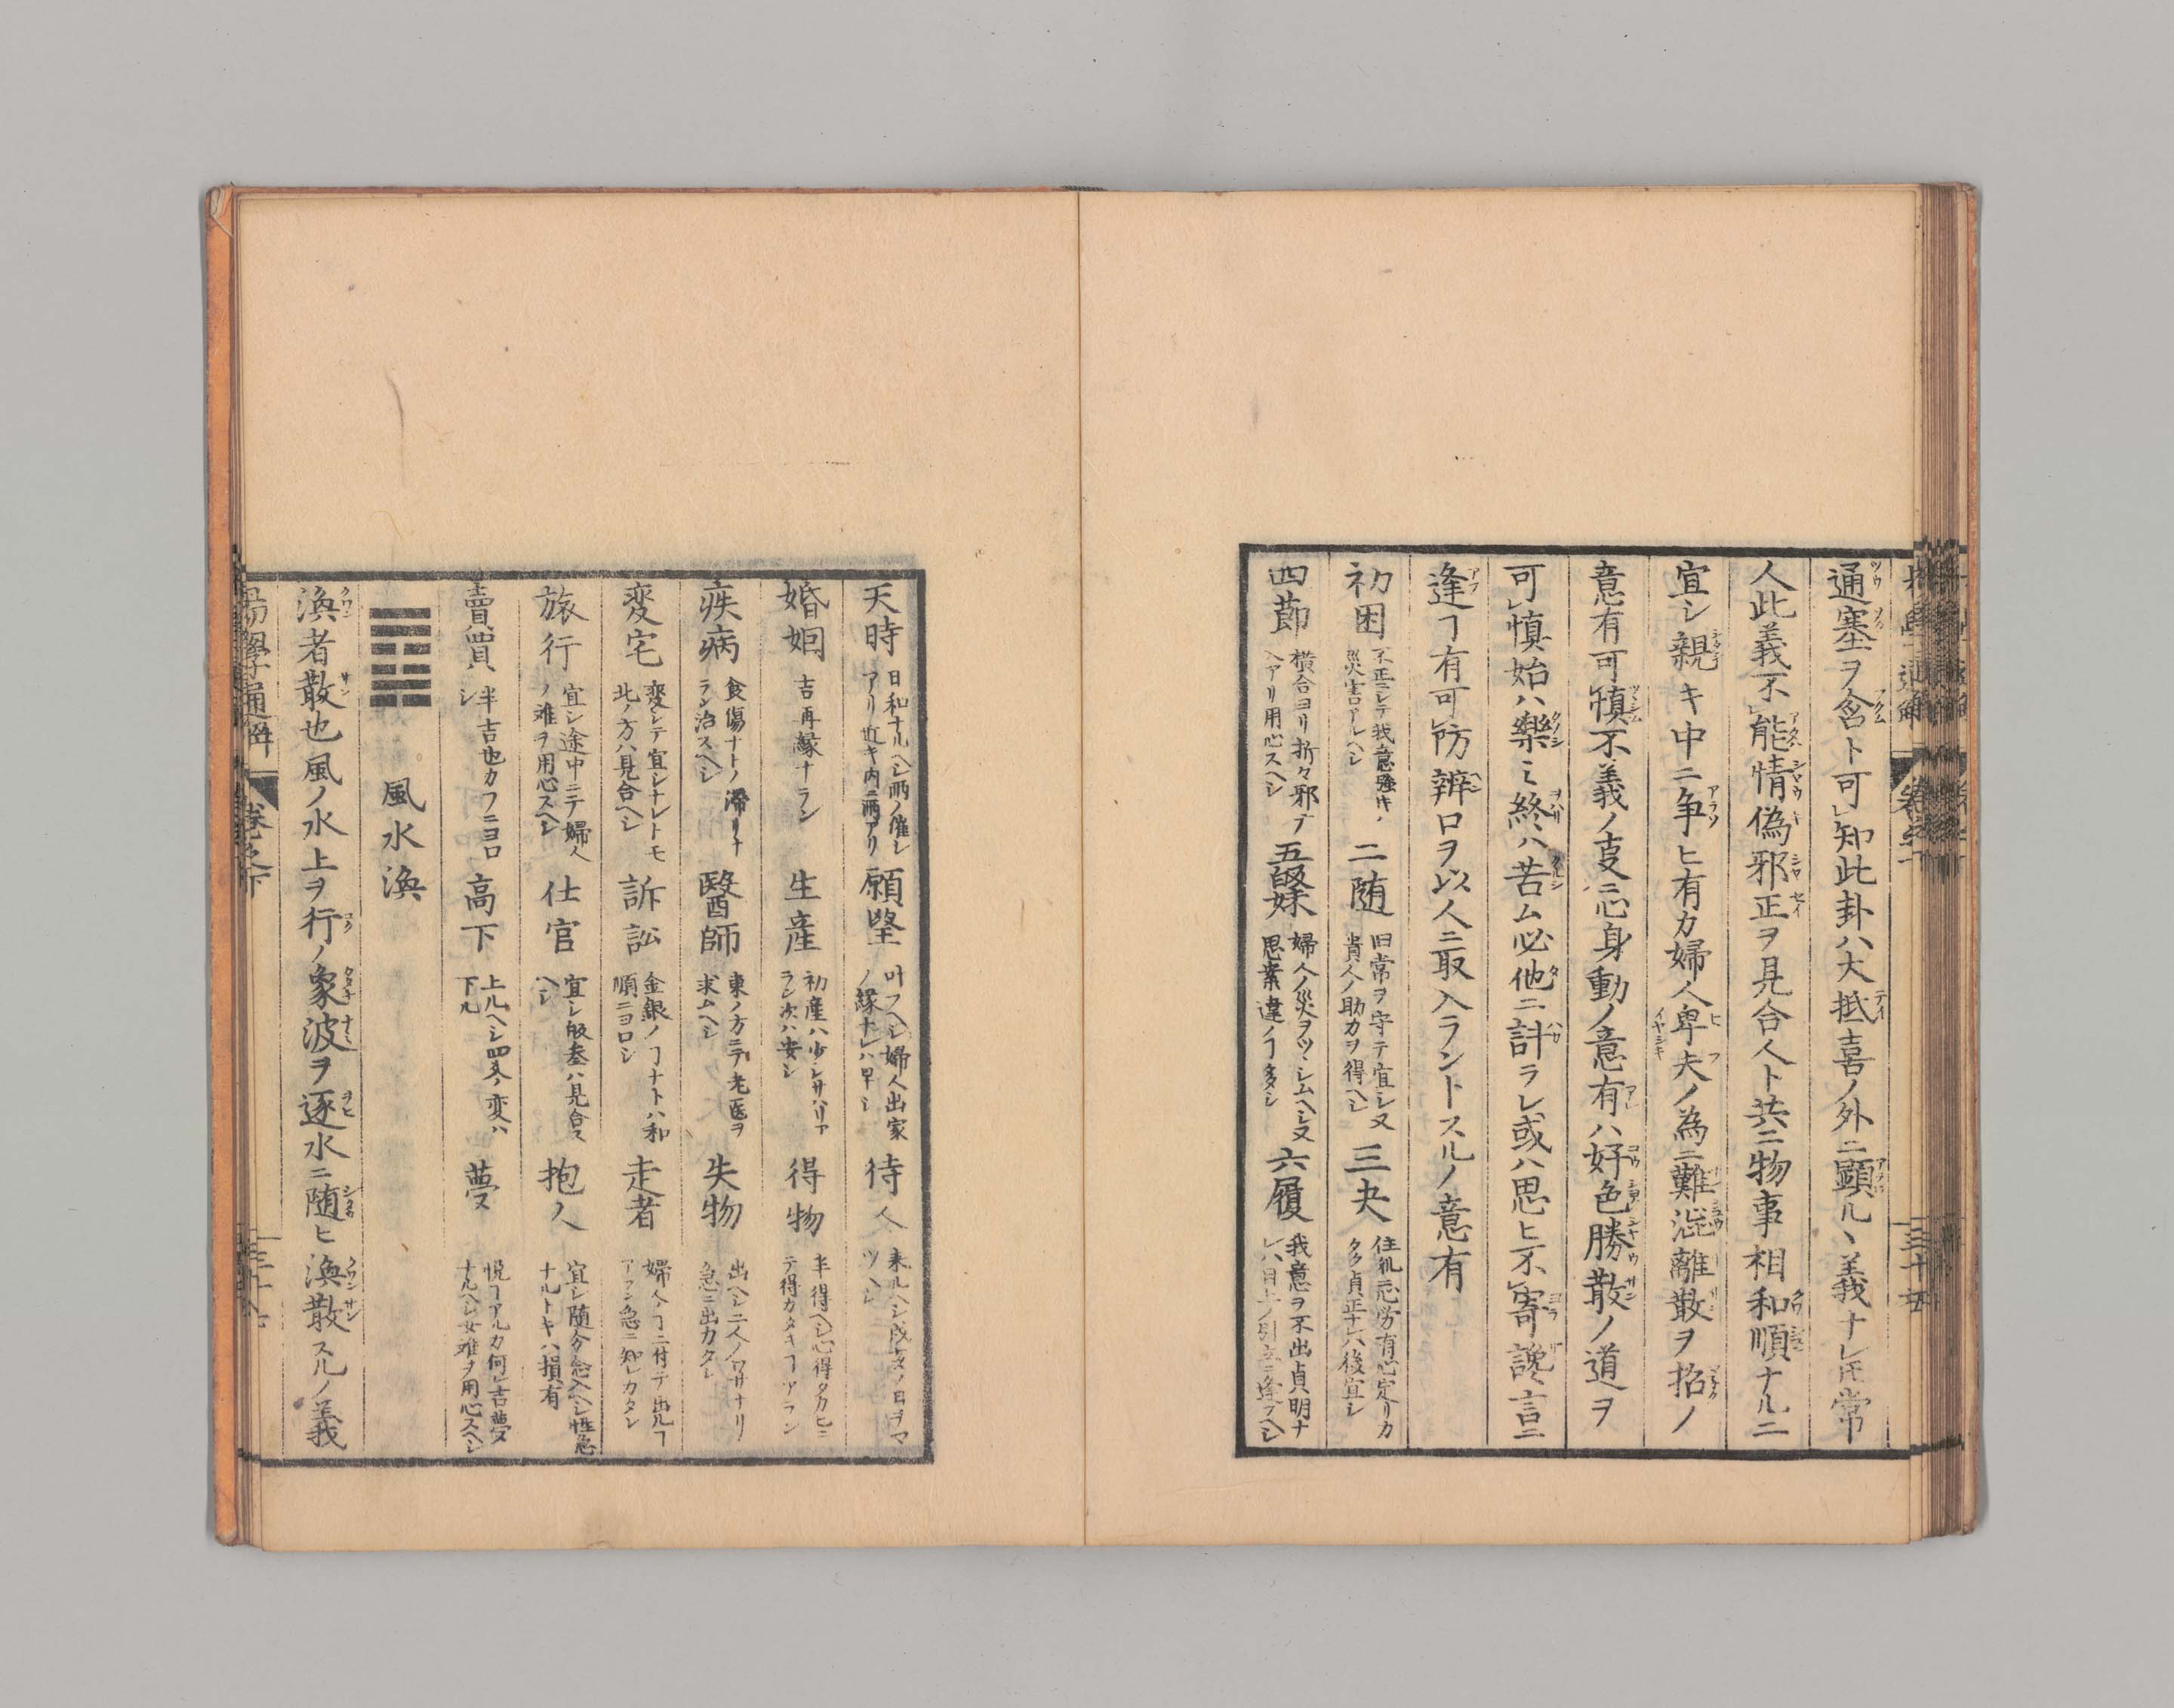 通塞ヲ含ト可知此卦ハ大抵喜ノ外ニ顕ルヽ義ナレ𪜈常
人此義不能情偽邪正ヲ見合人ト共ニ物事相和順ナルニ
宜シ親キ中ニ争ヒ有カ婦人卑夫ノ為ニ難澁離散ヲ招ノ
意有可慎不義ノ㕝ニ心身動ノ意有ハ好色勝散ノ道ヲ
可慎始ハ樂ミ終ハ苦ム必他ニ計ラレ或ハ思ヒ不寄讒言ニ
逢ヿ有可防辨口ヲ以人ニ取入ラントスルノ意有
初困 不正ニシテ我意強キノ災害アルヘシ 二随 旧常ヲ守テ宜シ又貴人ノ助力ヲ得ヘシ 三夬 住処ニ心労有心定リカタク貞正ナレハ後宜シ
四節 横合ヨリ折々邪テヘアリ用心スヘシ 五歸妹 婦人ノ災ヲツヽシムヘシ又思案違ノヿ多シ 六履 我意ヲ不出貞明ナレハ目上ノ引立ニ逢フヘシ
天時 日和ナルヘシ雨ノ催シアリ近キ内ニ雨アリ 願望 叶フヘシ婦人出家ノ縁ナレハ早シ 待人 来ルヘシ戌亥ノ日ヲマツヘシ
婚姻 吉再縁ナラン 生産 初産ハ少シサハリアラン次ハ安シ 得物 半得ヘシ心得タカヒニテ得カタキヿアラン
疾病 食傷ナトノ滞リナラン治スヘシ 醫師 東ノ方ニテ老医ヲ求ムヘシ 失物 出ヘシ二人ノワサナリ急ニ出カタシ
変宅 変シテ宜シナレトモ北ノ方ハ見合ヘシ 訴訟 金銀ノヿナトハ和順ニヨロシ 走者 婦人ノヿニ付テ出ルヿアラン急ニ知レカタシ
旅行 宜シ途中ニテ婦人ノ難ヲ用心スヘシ 仕官 宜シ般参ハ見合スヘシ 抱人 宜シ随分念入ヘシ性急ナルトキハ損有
賣買 半吉也カフニヨロシ 高下 上ルヘシ四爻ノ変ハ下ル 夢 悦ヿアルカ何レ吉夢ナルヘシ女難ヲ用心スヘシ
風水渙
渙者散也風ノ水上ヲ行ノ象波ヲ逐水ニ随ヒ渙散スルノ義
易學通解 卷之下